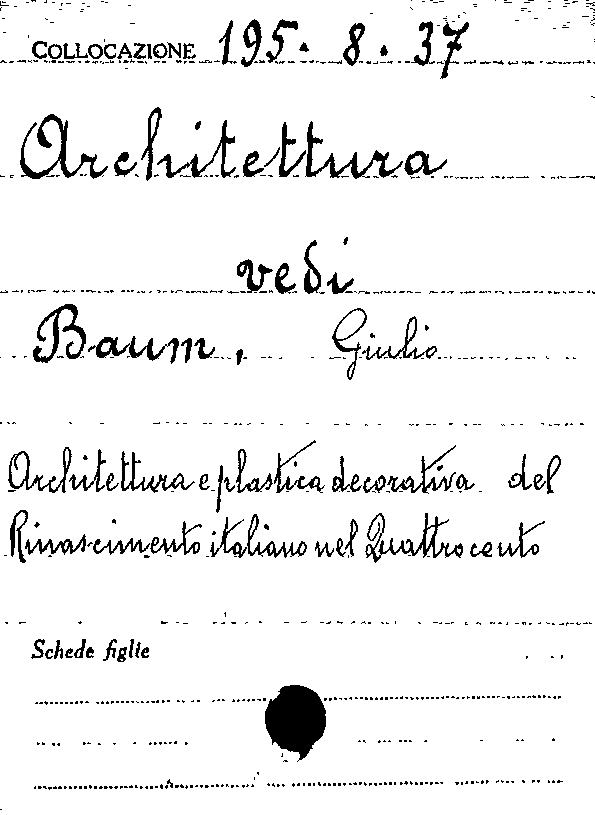 COLLOCAZIONE 195. 8. 37
Architettura
vedi
Baum, Giulio
Architettura e plastica decorativa del
Rinascimento italiano nel Quattrocento
Schede figlie